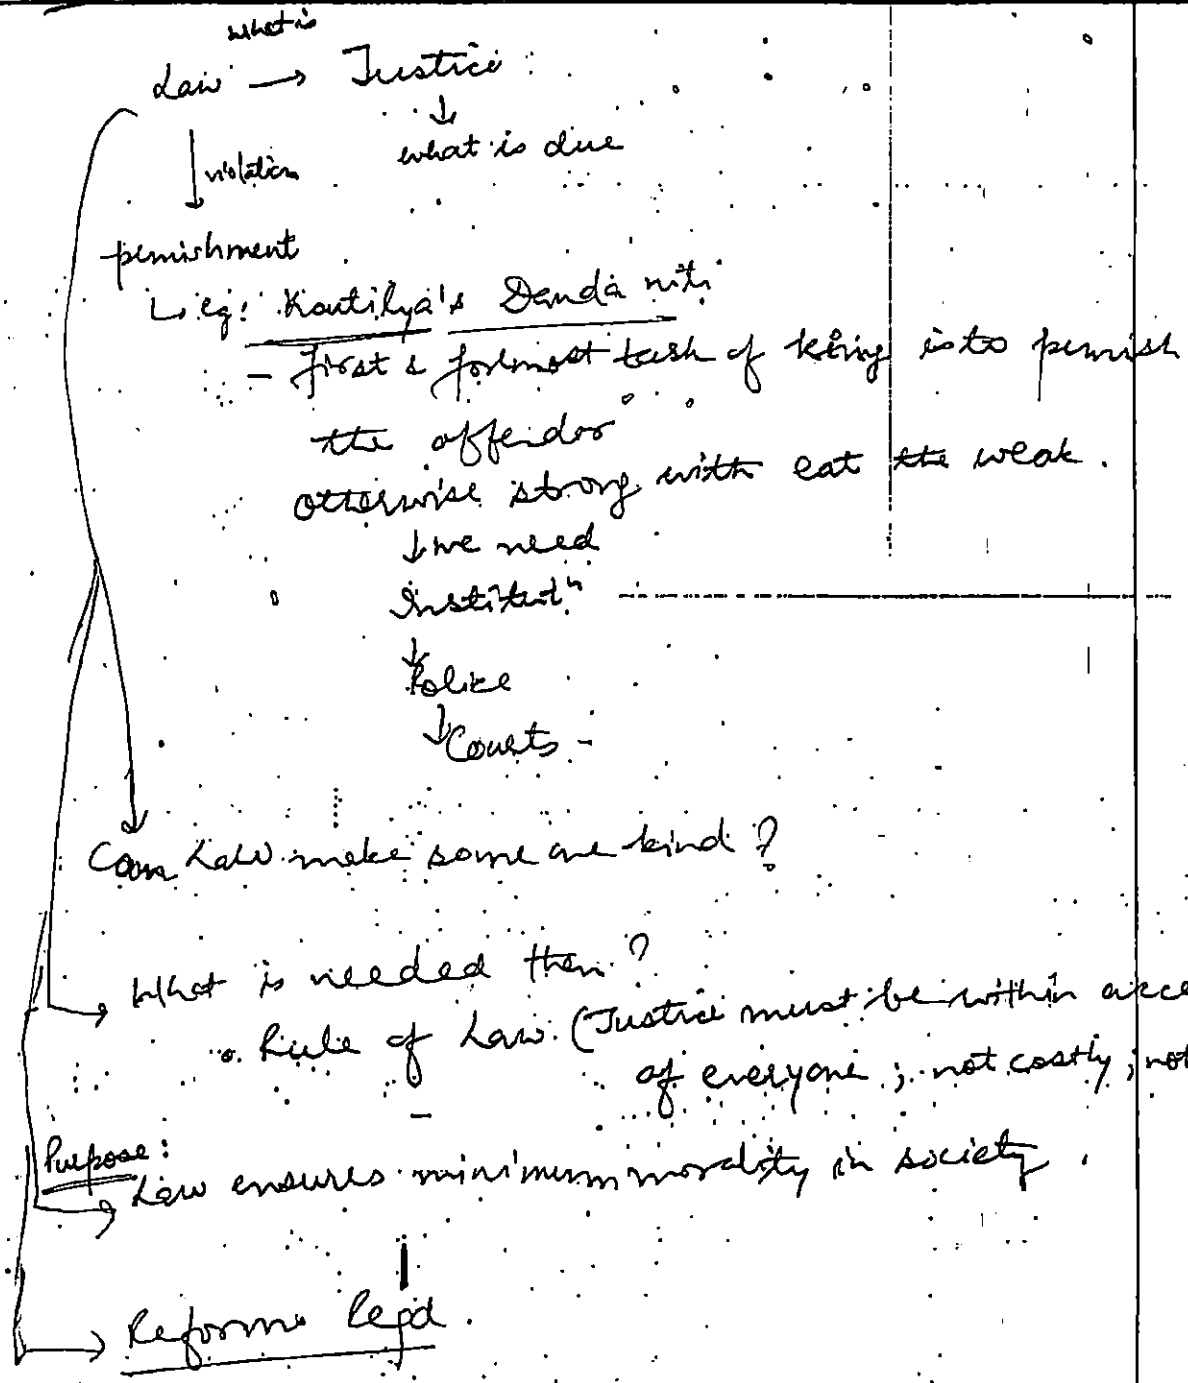 what is
Law → Justice
↓
what is due
↓ violation
punishment
↳ eg: Kautilya's Danda niti
- first & formost task of king is to punish
the offendor
otherwise strong with eat the weak.
↓ we need
Institutn
↓
Police
↓ Courts -
Can Law make some one kind ?
→ What is needed then ?
Rule of Law. (Justice must be within acce
of everyone ; not costly ; not
Purpose :
→ Law ensures minimum morality in society .
→ Reforms Reqd .